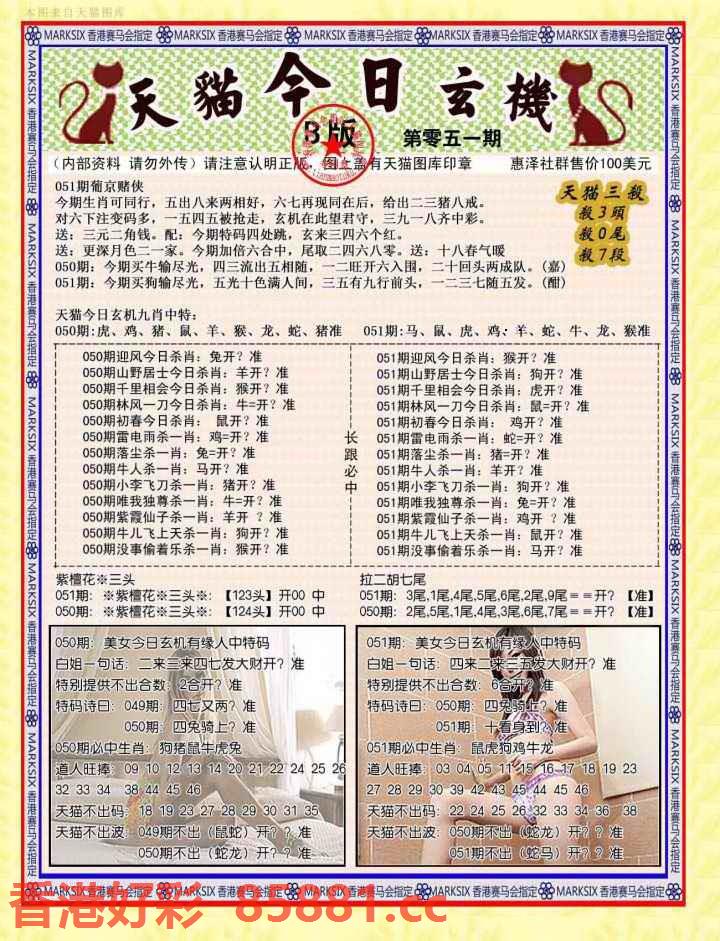 本图来自天猫图库
MARKSIX 香港赛马会指定 MARKSIX 香港赛马会指定 MARKSIX 香港赛马会指定 MARKSIX 香港赛马会指定 MARKSIX 香港赛马会指定
天貓今日玄機
B版
第零五一期
(内部资料 请勿外传)请注意认明正版，图上盖有天猫图库印章 惠泽社群售价100美元
051期葡京赌侠
今期生肖可同行，五出八来两相好，六七再现同在后，给出二三猪八戒。
对六下注变码多，一五四五被抢走，玄机在此望君守，三九一八齐中彩。
送：三元二角钱。配：今期特码四处跳，玄来三四六个红。
送：更深月色二一家。今期加倍六合中，尾取二四六八零。送：十八春气暖
050期：今期买牛输尽光，四三流出五相随，一二旺开六入围，二十回头两成队。(嘉)
051期：今期买狗输尽光，五光十色满人间，三五有九行前头，一二三七随五发。(酣)
天猫三殺
殺3頭
殺0尾
殺7段
天猫今日玄机九肖中特：
050期:虎、鸡、猪、鼠、羊、猴、龙、蛇、猪准 051期:马、鼠、虎、鸡、羊、蛇、牛、龙、猴准
050期迎风今日杀肖：兔开？准
050期山野居士今日杀肖：羊开？准
050期千里相会今日杀肖：猴开？准
050期林风一刀今日杀肖：牛=开？准
050期初春今日杀肖： 鼠开？准
050期雷电雨杀一肖：鸡=开？准
050期落尘杀一肖：兔=开？准
050期牛人杀一肖：马开？准
050期小李飞刀杀一肖：猪开？准
050期唯我独尊杀一肖：牛=开？准
050期紫霞仙子杀一肖：羊开 ？准
050期牛儿飞上天杀一肖：狗开？准
050期没事偷着乐杀一肖：猴开？准
长跟必中
051期迎风今日杀肖：猴开？准
051期山野居士今日杀肖：狗开？准
051期千里相会今日杀肖：虎开？准
051期林风一刀今日杀肖：鼠=开？准
051期初春今日杀肖： 鸡开？准
051期雷电雨杀一肖：蛇=开？准
051期落尘杀一肖：猪=开？准
051期牛人杀一肖：羊开？准
051期小李飞刀杀一肖：狗开？准
051期唯我独尊杀一肖：兔=开？准
051期紫霞仙子杀一肖：鸡开 ？准
051期牛儿飞上天杀一肖：鼠开？准
051期没事偷着乐杀一肖：马开？准
紫檀花※三头
051期：※紫檀花※三头※：【123头】开00 中
050期：※紫檀花※三头※：【124头】开00 中
拉二胡七尾
051期：3尾,1尾,4尾,5尾,6尾,2尾,9尾＝＝开？【准】
050期：2尾,5尾,1尾,4尾,3尾,6尾,7尾＝＝开？【准】
050期：美女今日玄机有缘人中特码
白姐一句话：二来三来四七发大财开？准
特别提供不出合数：2合开？准
特码诗曰：049期：四七又两？准
050期：四兔骑上？准
050期必中生肖：狗猪鼠牛虎兔
道人旺捧：09 10 12 13 14 20 21 22 24 25 26
32 33 34 38 44 45 46
天猫不出码：18 19 23 27 28 29 30 31 35
天猫不出波：049期不出（鼠蛇）开？？准
050期不出（蛇龙）开？？准
051期：美女今日玄机有缘人中特码
白姐一句话：四来二来三五发大财开？准
特别提供不出合数：6合开？准
特码诗曰：050期：四兔骑上？准
051期：十看身到？准
051期必中生肖：鼠虎狗鸡牛龙
道人旺捧：03 04 05 11 15 16 17 18 19 23
27 28 29 30 39 42 43 45 44 45 46
天猫不出码：22 24 25 26 32 33 34 36 38
天猫不出波：050期不出（蛇龙）开？？准
051期不出（蛇马）开？？准
MARKSIX 香港赛马会指定 MARKSIX 香港赛马会指定 MARKSIX 香港赛马会指定 MARKSIX 香港赛马会指定 MARKSIX 香港赛马会指定
香港好彩 85881.cc